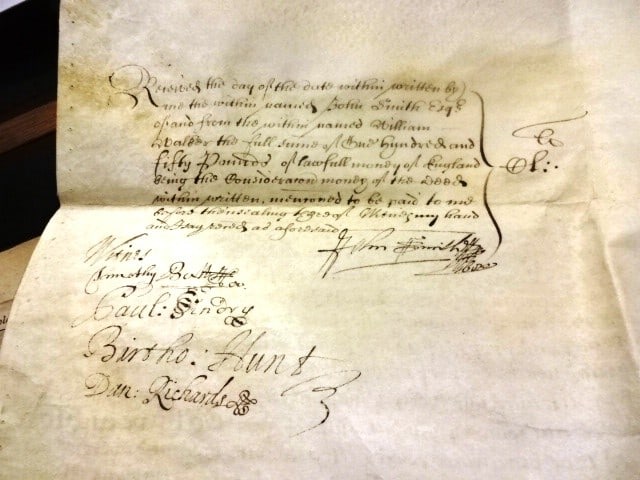 Received the day of the date within written by
me the within named John Smith Esqr
of and from the within named William
Walder the full summe of One Hundred and
fifty Pounds of lawfull money of England
being the Consideracon money of the Deed
within written, menconed to be paid to me
before thensealing hereof Witnes my hand
and day &
aforesaid
John Smith
li:
Witnes
Timothy
Paul: Hindry
Bartho: Hunt
Dan: Richards